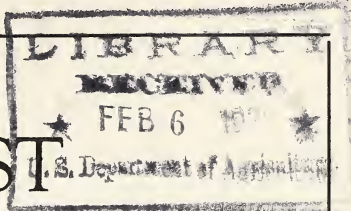 LIBRARY
RECEIVED
★ FEB 6 ★
U.S. Department of Agriculture
ST